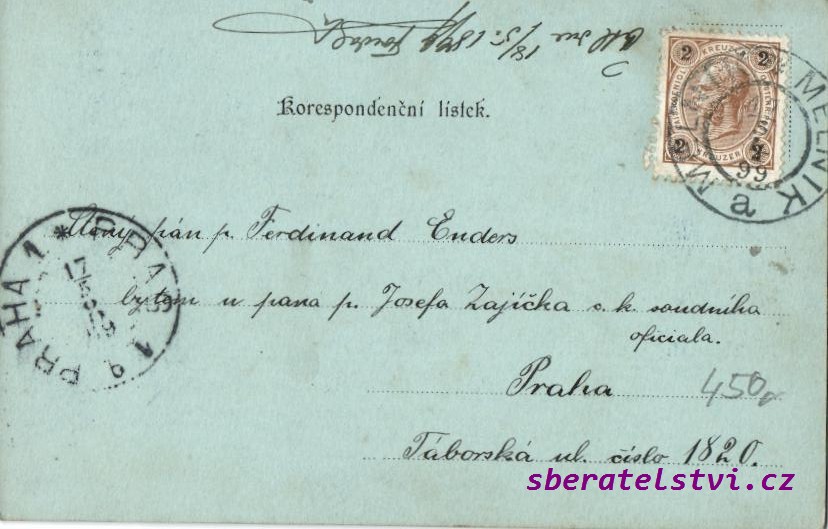 Korespondenční lístek.
2 KREUZER 2
2 KREUZER 2
MĚLNÍK
a
99
PRAHA 1 * PRAHA 1
17
9
Ctěný pán p. Ferdinand Enders
bytem u pana p. Josefa Zajíčka c. k. soudního
oficiala.
Praha
450,-
Táborská ul. číslo 1820.
sberatelstvi.cz